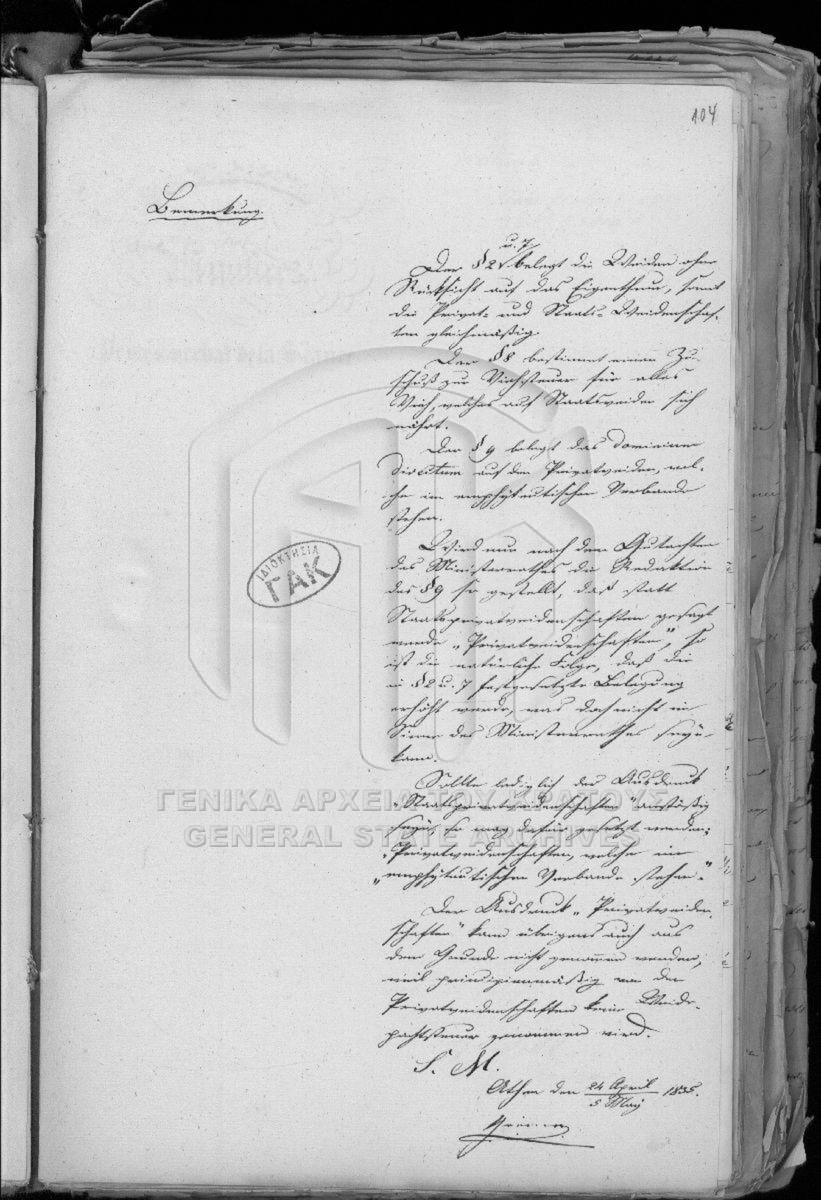 104
Bemerkung.
u. 7
Der § 2 belegt die Weiden ohne
Rücksicht auf das Eigenthum, somit
die Privat- und Staats-Weidenschaf-
ten gleichmäßig.
Der § 8 bestimmt einen Zu-
schuß zur Viehsteuer für alles
Vieh, welches auf Staatsweiden sich
nährt.
Der § 9 belegt das dominium
directum auf den Privatweiden, wel-
che im emphyteutischen Verbande
stehen.
Wird nun nach dem Gutachten
des Ministerrathes die Redaktion
des § 9 so gestellt, daß statt
Staatsprivatweidenschaften gesagt
werde „Privatweidenschaften", so
ist die natürliche Folge, daß die
in § 2 u. 7 festgesetzte Belegung
erhöht werde, was doch nicht im
Sinne des Ministerrathes seyn
kann.
Sollte lediglich der Ausdruck
„Staatsprivatweidenschaften" anstößig
seyn, so mag dafür gesetzt werden:
„Privatweidenschaften, welche im
„emphyteutischen Verbande stehen."
Der Ausdruck „Privatweiden-
schaften" kann übrigens auch aus
dem Grunde nicht genommen werden,
weil prinzipienmäßig von den
Privatweidenschaften keine Weide-
pachtsteuer genommen wird.
S. M.
Athen den 24 April / 5 May 1835.
ΙΔΙΟΚΤΗΣΙΑ
ΓΑΚ
ΓΕΝΙΚΑ ΑΡΧΕΙΑ ΤΟΥ ΚΡΑΤΟΥΣ
GENERAL STATE ARCHIVES